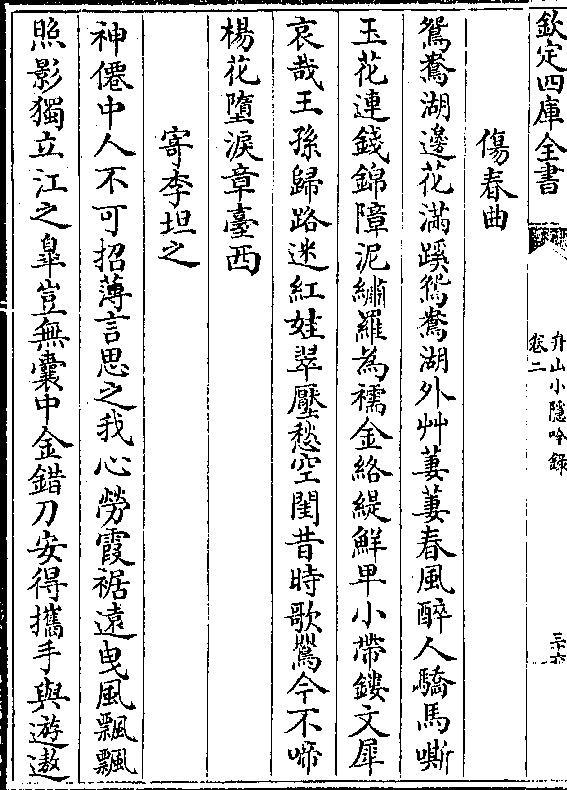 欽定四庫全書
弁山小隱吟錄
卷二
三十六
傷春曲
鴛鴦湖邊花滿蹊鴛鴦湖外艸萋萋春風醉人驕馬嘶
玉花連錢錦障泥繡羅為襦金絡緹鮮卑小帶鏤文犀
哀哉王孫歸路迷紅娃翠壓愁空閨昔時歌鶯今不啼
楊花墮淚章臺西
寄李坦之
神僊中人不可招薄言思之我心勞霞裾遠曵風飄飄
照影獨立江之臯豈無囊中金錯刀安得攜手與遊遨